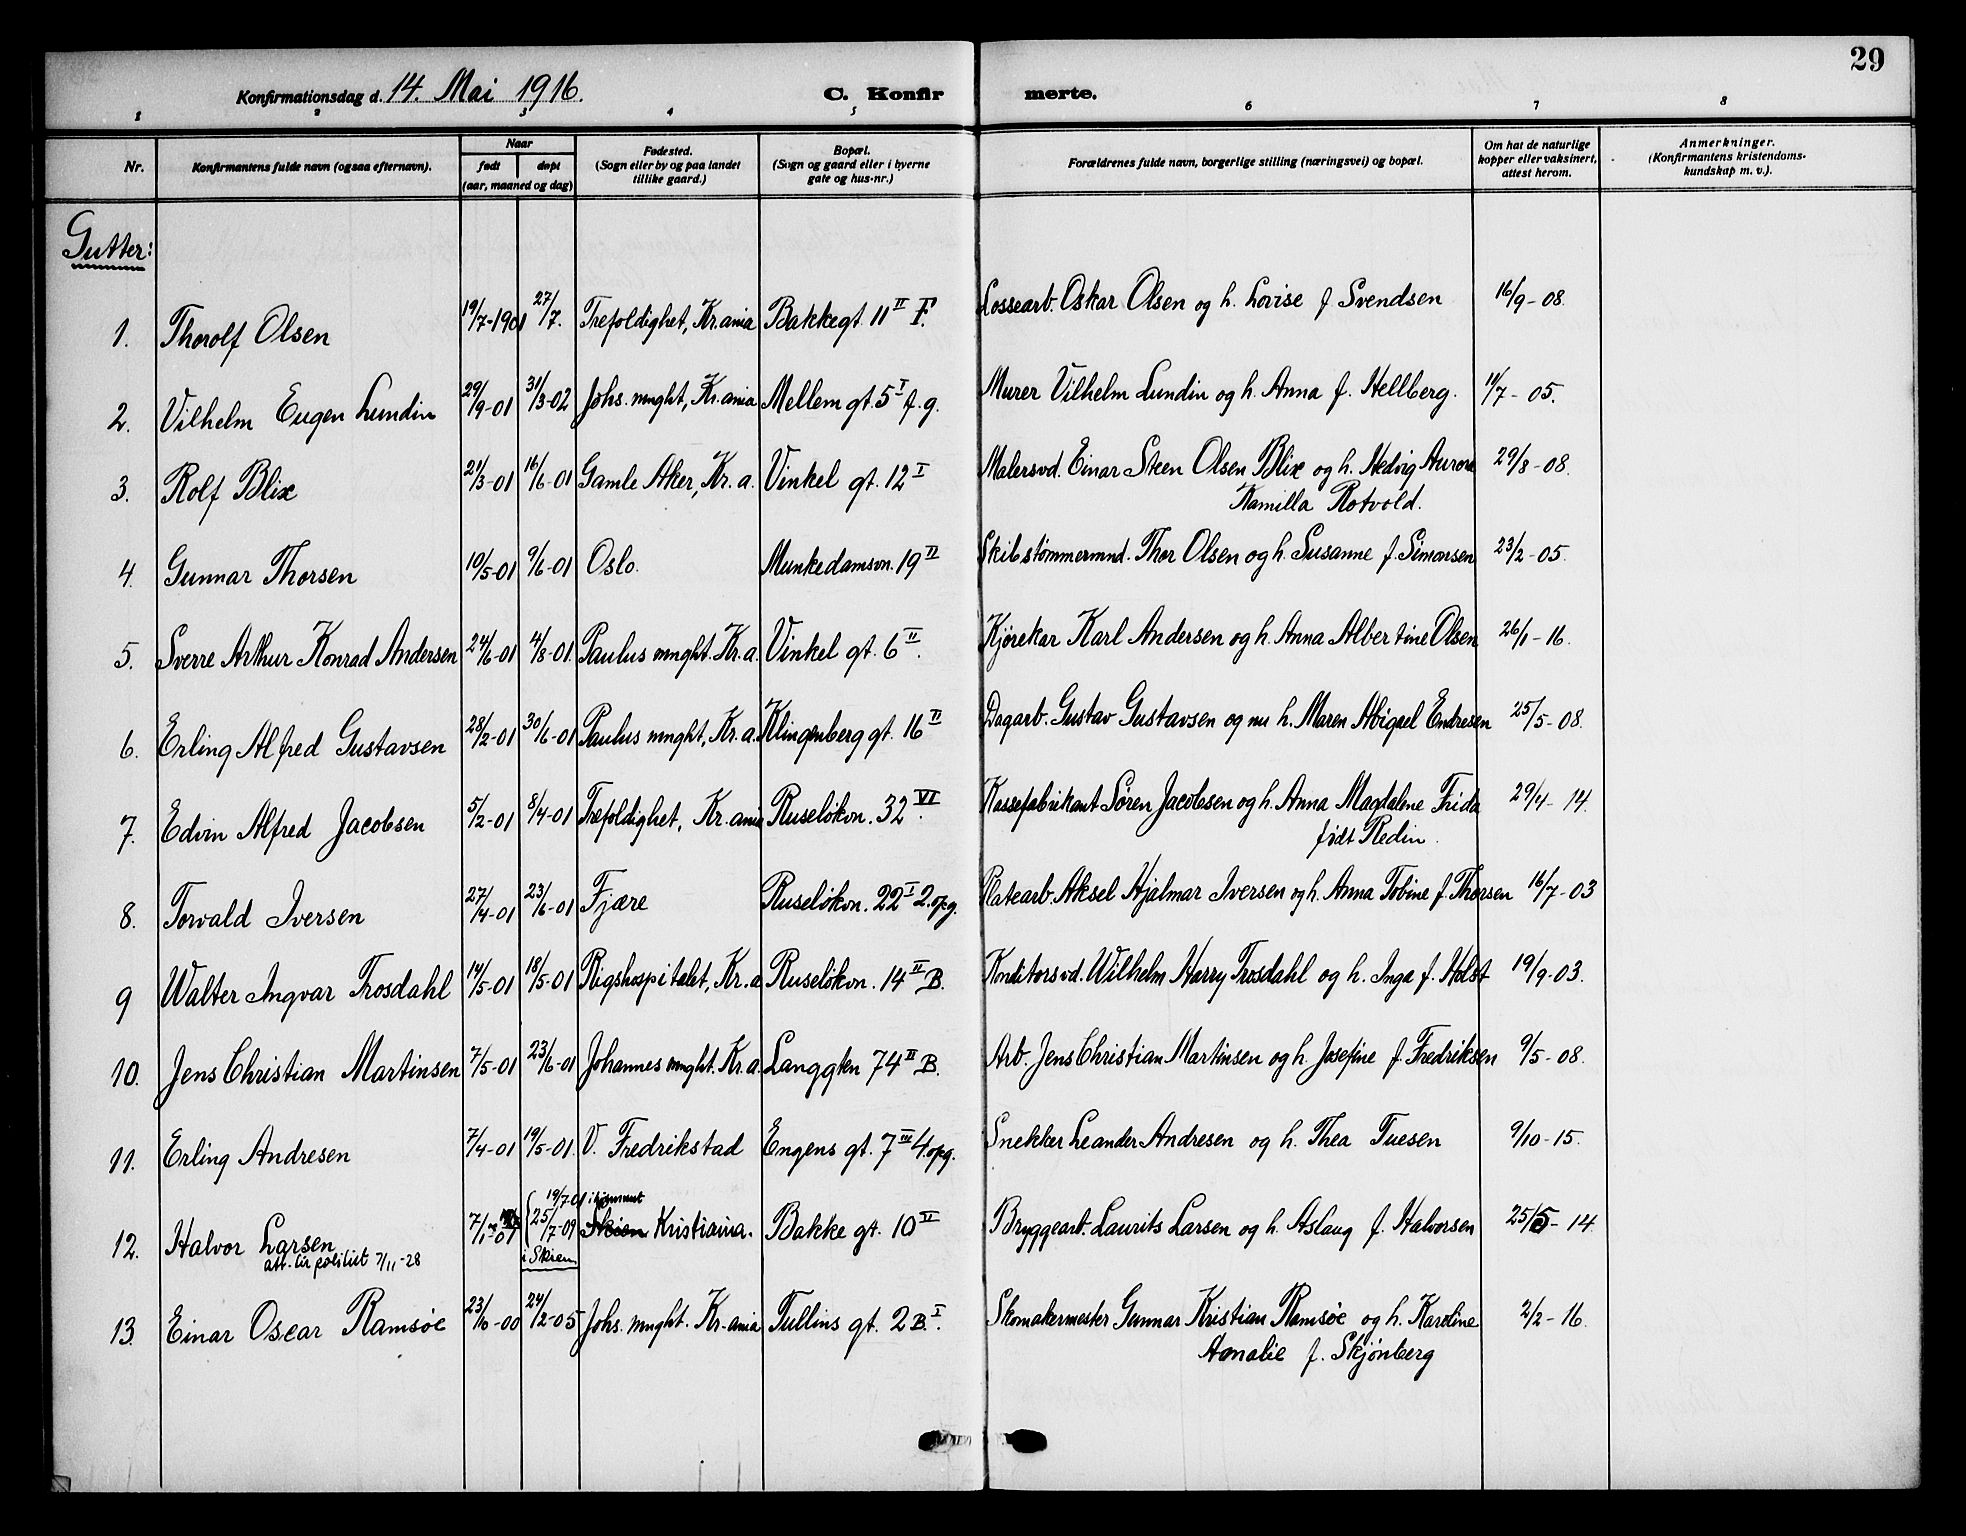 29
Konfirmationsdag d. 14. Mai 1916. C. Konfir merte.
1 2 3 4 5 6 7 8
Nr. Konfirmantens fulde navn (ogsaa efternavn). Naar født døpt (aar, maaned og dag) Fødested. (Sogn eller by og paa landet tillike gaard.) Bopæl. (Sogn og gaard eller i byerne gate og hus-nr.) Forældrenes fulde navn, borgerlige stilling (næringsvei) og bopæl. Om hat de naturlige kopper eller vaksinert, attest herom. Anmerkninger. (Konfirmantens kristendoms-kundskap m. v.).
Gutter:
1. Thorolf Olsen 19/7-1901 27/7. Trefoldighet, Kr.ania Bakkegt. 11 II F. Lossearb. Oskar Olsen og h. Lovise f Svendsen 16/9-08.
2. Vilhelm Eugen Lundin 29/9-01 31/3-02 Johs. mnght, Kr.ania Mellem gt. 5 I f.g. Murer Vilhelm Lundin og h. Anna f. Hellberg. 11/7-05.
3. Rolf Blix 21/3-01 16/6-01 Gamle Aker, Kr.a. Vinkel gt. 12 I Malersvd. Einar Steen Olsen Blix og h. Hedvig Aurora
Kamilla Rotvold. 29/8-08.
4. Gunnar Thorsen 10/5-01 9/6-01 Oslo. Munkedamsvn. 19 II Skibstømmermnd. Thor Olsen og h. Susanne f. Simonsen 23/2-05.
5. Sverre Arthur Konrad Andersen 24/6-01 4/8-01. Paulus mnght. Kr.a. Vinkel gt. 6 II. Kjørekar Karl Andersen og h. Anna Albertine Olsen 26/1-16.
6. Erling Alfred Gustavsen 28/2-01 30/6-01 Paulus mnght, Kr.a. Klingenberg gt. 16 II Dagarb. Gustav Gustavsen og nu h. Maren Abigael Endresen 25/5-08.
7. Edvin Alfred Jacobsen 5/2-01 8/4-01 Trefoldighet, Kr.ania Ruseløkvn. 32 VI. Kassefabrikant Søren Jacobsen og h. Anna Magdalene Frida
født Redin. 29/4-14.
8. Torvald Iversen 27/4-01 23/6-01 Fjære Ruseløkvn. 22 I 2.opg. Platearb. Aksel Hjalmar Iversen og h. Anna Tobine f. Thorsen 16/7-03
9 Walter Ingvar Trosdahl 14/5-01 18/5-01 Rigshospitalet, Kr.a Ruseløkvn. 14 II B. Konditorsvd. Wilhelm Harry Trosdahl og h. Inga f. Holst 19/9-03.
10. Jens Christian Martinsen 7/5-01 23/6-01 Johannes mnght. Kr.a. Langgten 74 II B. Arb. Jens Christian Martinsen og h. Josefine f. Fredriksen 9/5-08.
11. Erling Andresen 7/4-01 19/5-01. V. Fredrikstad Engens gt. 7 III 4.opg. Snekker Leander Andresen og h. Thea Tuesen 9/10-15.
12. Halvor Larsen 19/7-01 hjemmet
25/7-09 Skien Kristiania. Bakke gt. 10 II Bryggearb. Laurits Larsen og h. Aslaug f. Halvorsen 25/5-14
att. til politiet 7/11-28 i Skien
13. Einar Oscar Ramsøe 23/6-00 24/2-05 Johs. mnght. Kr.ania Tullins gt. 2 B. I. Skomakermester Gunnar Kristian Ramsøe og h. Karoline
Amalie f. Skjønberg 2/2-16.